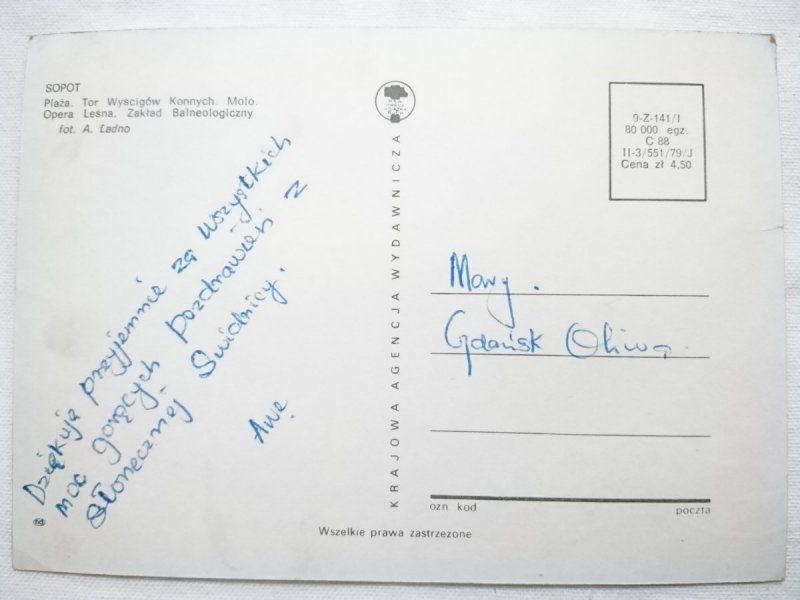 SOPOT
Plaża. Tor Wyścigów Konnych. Molo.
Opera Leśna. Zakład Balneologiczny
fot. A. Ładno
Dziękuję przyjemnie za wszystkich
moc gorących pozdrowień z
słonecznej Świdnicy.
KRAJOWA AGENCJA WYDAWNICZA
9-Z-141/I
80 000 egz.
C 88
II-3/551/79/J
Cena zł 4,50
Mary.
Gdańsk Oliwa
ozn kod
poczta
Wszelkie prawa zastrzeżone